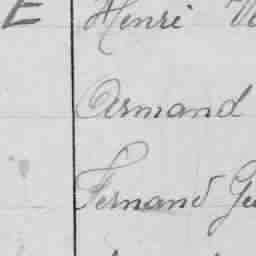 E Henri
Armand
Fernand